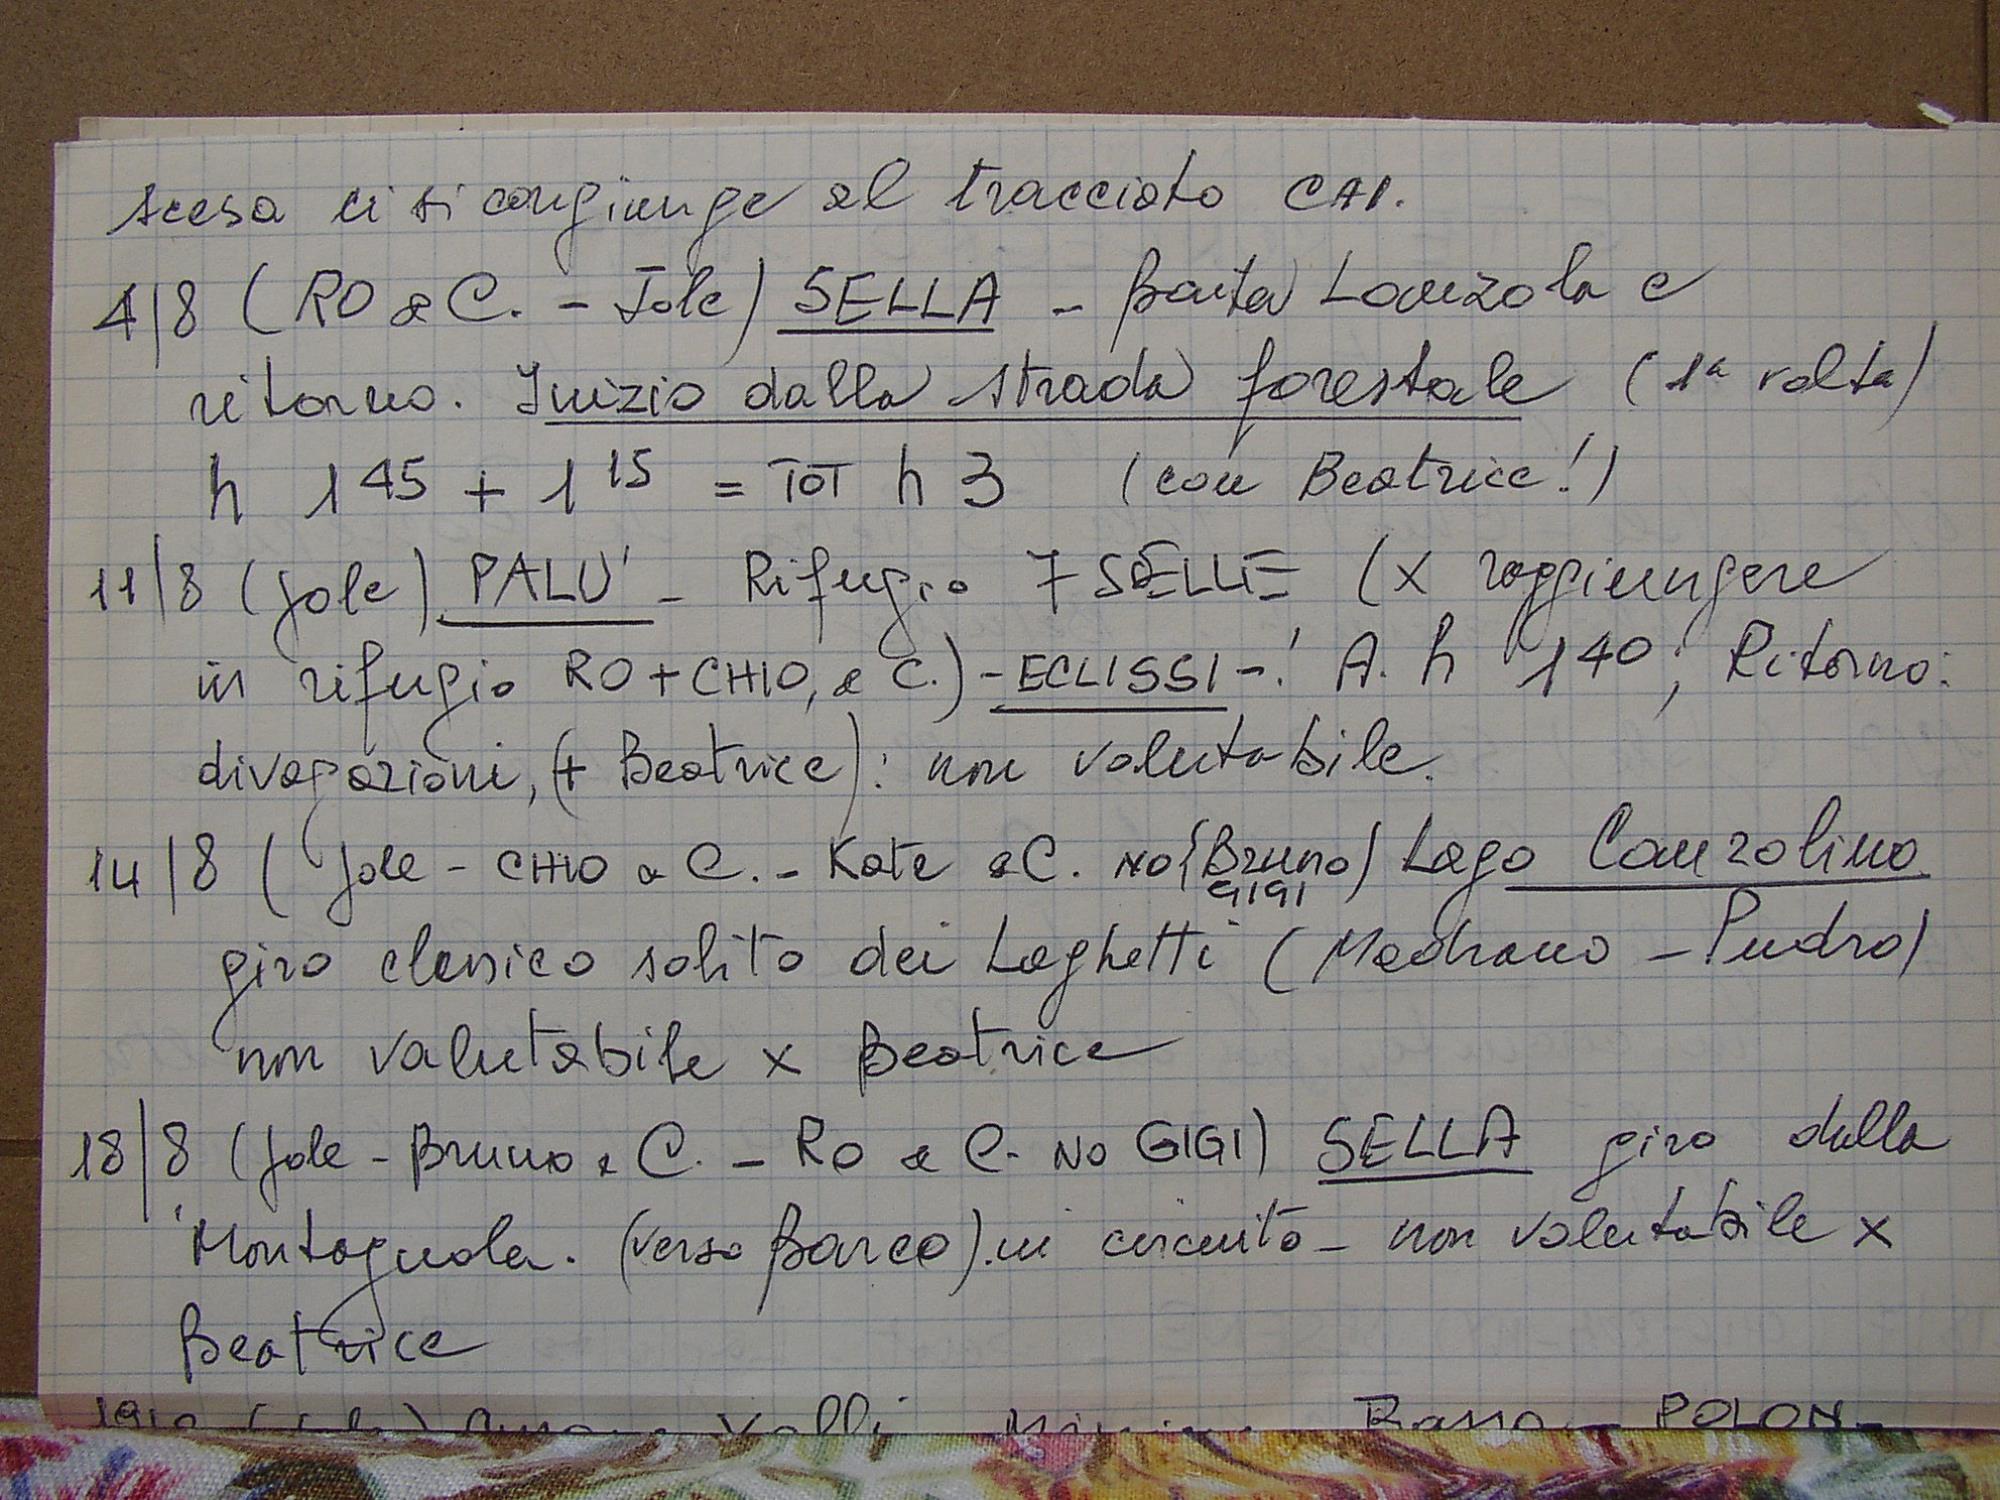 scesa ci si congiunge al tracciato CAI.
4/8 (RO e C. - Jole) SELLA - Baita Lanzola e
ritorno. Inizio dalla strada forestale (1ª volta)
h 1 45 + 1 15 = TOT h 3 (con Beatrice!)
11/8 (Jole) PALU' - Rifugio 7 SELLE (x raggiungere
in rifugio RO + CHIO, e C.) - ECLISSI -! A. h 1 40; Ritorno:
divagazioni, (+ Beatrice): non valutabile.
14/8 (Jole - CHIO e C. - Kate e C. NO {Bruno) Lago Canzolino
GIGI
giro classico solito dei Laghetti (Madrano - Pudro)
non valutabile x Beatrice
18/8 (Jole - Bruno e C. - RO e C. NO GIGI) SELLA giro della
Montagnola. (verso Barco). in circuito - non valutabile x
Beatrice